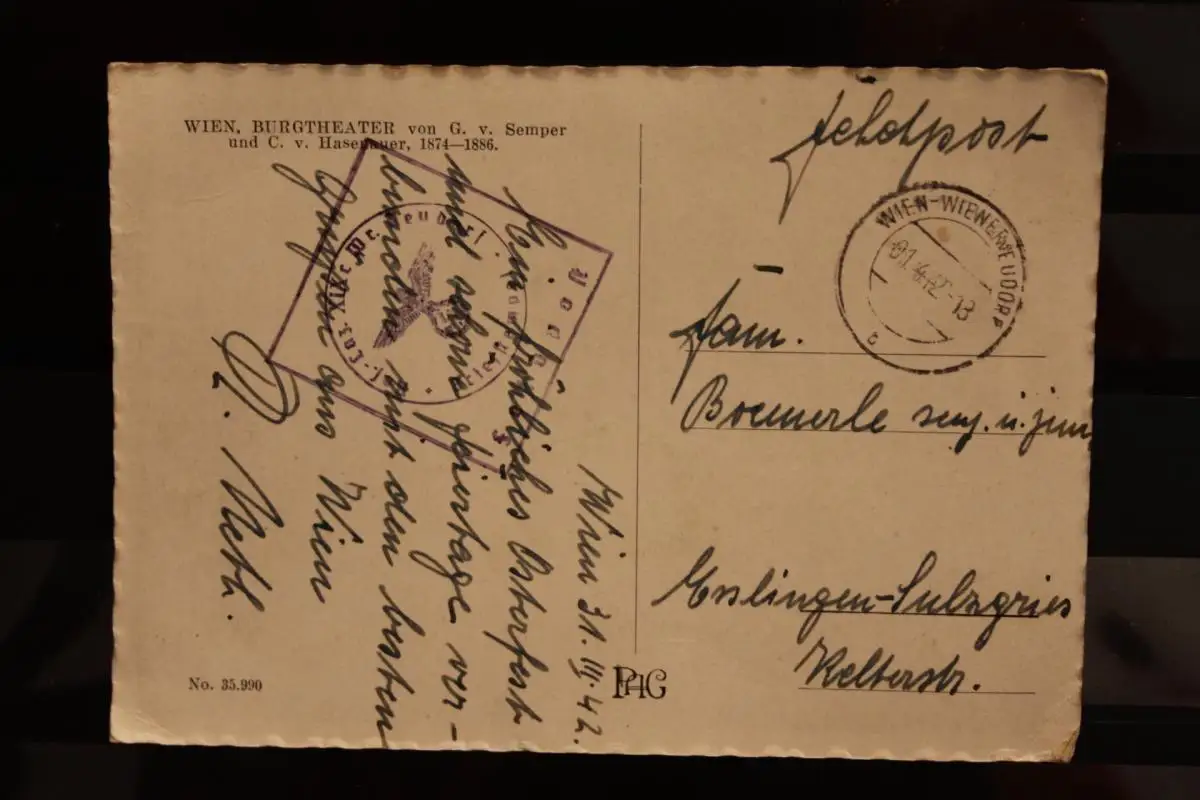 WIEN, BURGTHEATER von G. v. Semper
und C. v. Hasenauer, 1874—1886.
Wien 31. III. 42.
Ein fröhliches Osterfest
und schöne Feiertage ver-
bunden mit den besten
Grüssen aus Wien
No. 35.990
PAG
Feldpost
WIEN-WIENERNEUDORF
01.4.42-13
c
Fam.
Boemerle sen. u. jun.
Esslingen-Sulzgries
Kelterstr.